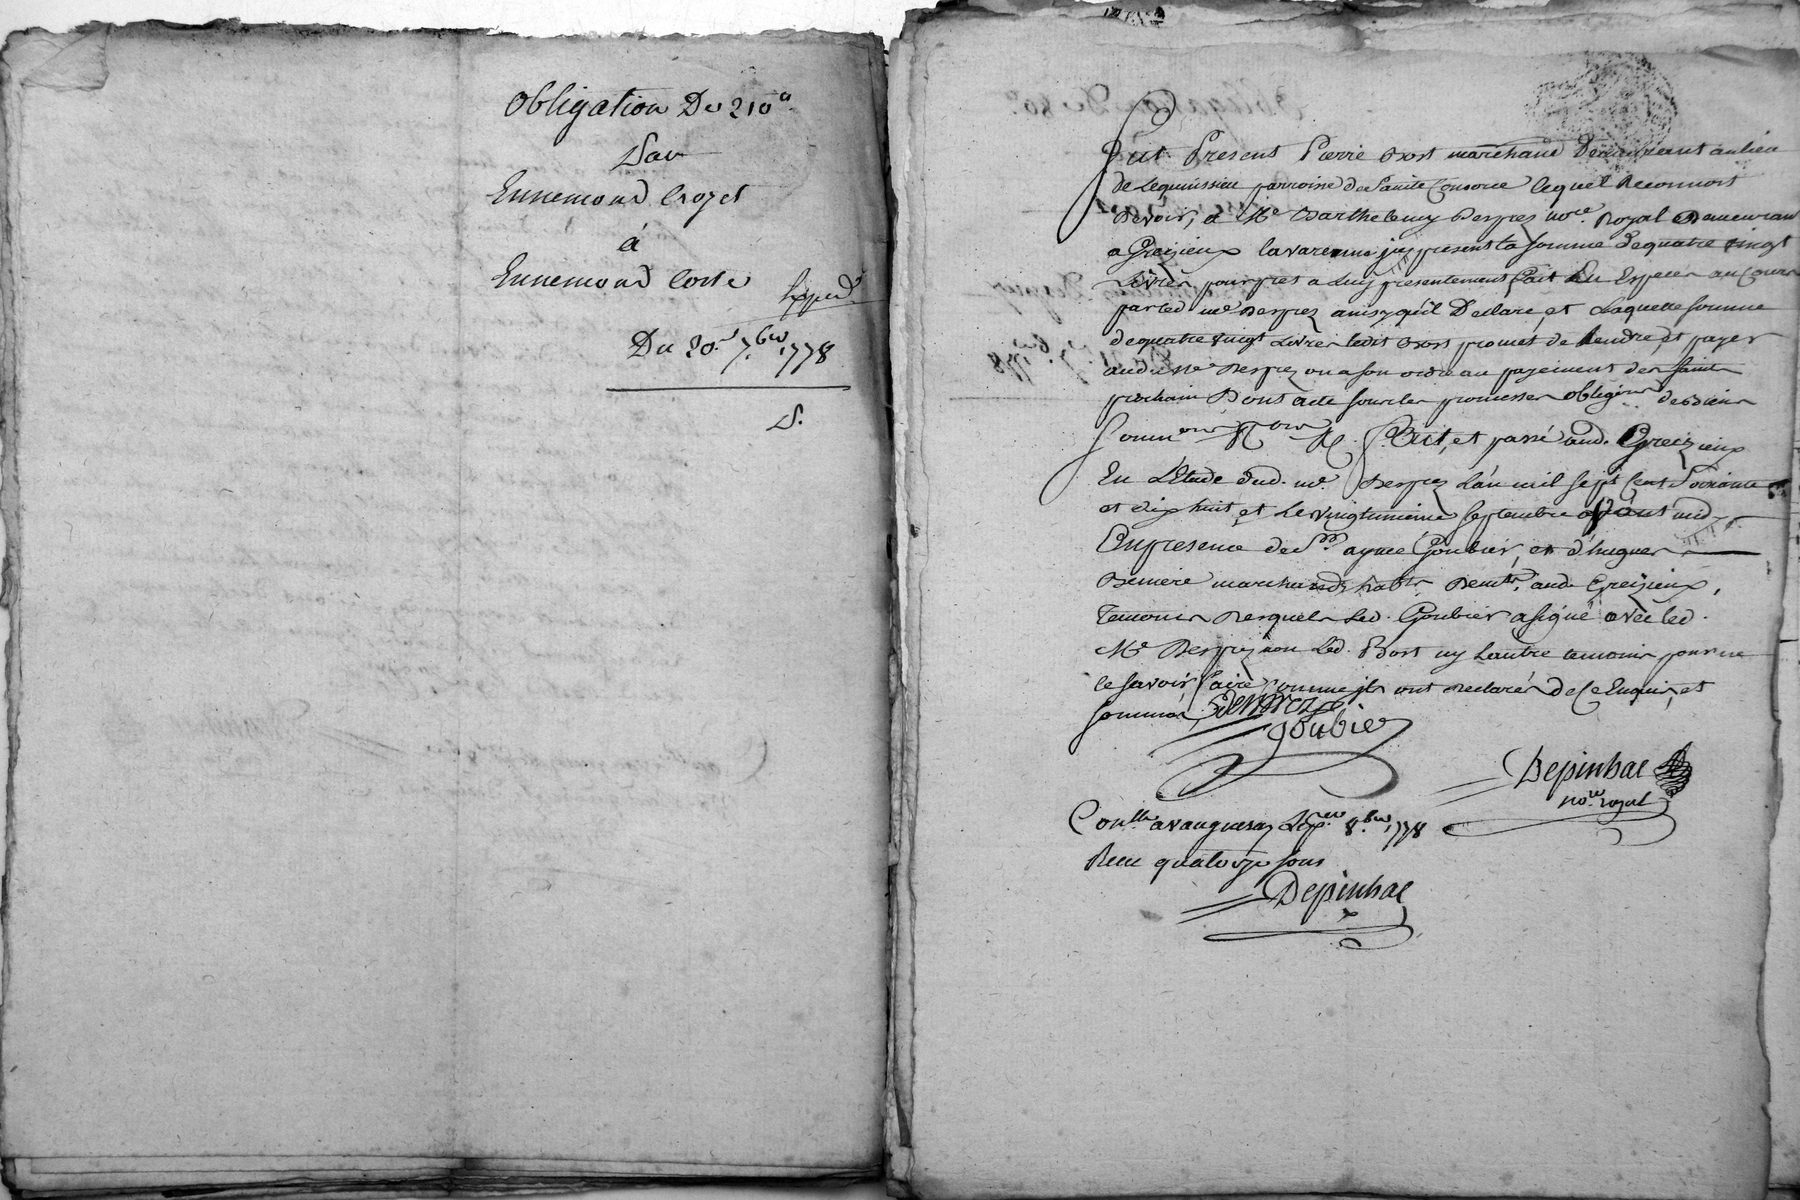 Obligation De 210ll
Par
Ennemond Croget
à
Ennemond Coste
Exped.
Du 20e 7.bre 1778
S.
Fut Present Pierre Bost marchand Demeurant au lieu
de Lequissieu parroisse de Sainte Consorce lequel Reconnoit
Devoir, a Me Barthelemy Desprez nore Royal Demeurant
a Greizieux lavarenne jcy present la somme de quatre vingt
Livres pour pret a luy presentement fait En Especes au Cours
par led me Desprez ainsy qu'il Declare, et Laquelle somme
de quatre vingt Livres ledit Bost promet de Rendre, et payer
audit Me Desprez ou a son ordre au payement des saints
prochain Dont acte sous les promesses obligons de Biens
soumons Rons &c. Fait, et passé aud. Greizieux
En L'Etude dud. me. Desprez L'an mil sept Cent soixante
et dix huit, et Le vingtunieme septembre avant midy
En presence de Srs aymé Goubier, et d'hugues
Beniere marchands habts Demts. aud. Greizieux,
Temoins Desquels Led. Goubier a signé avec led.
Me Desprez non Led. Bost ny Lautre temoin pour ne
le savoir faire comme jls ont declarés de ce Enquis, et
sommés, Desprez
Goubier
Depinhac
nore. royal
Conllé a vaugneray Le per 8.bre 1778
Recu quatorze sous
Depinhac